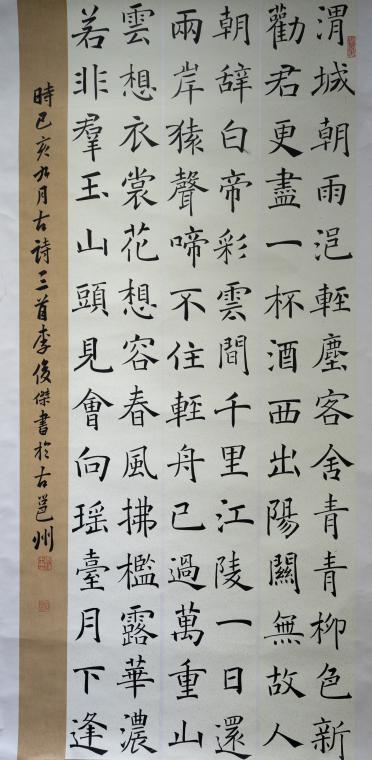 渭城朝雨浥輕塵客舍青青柳色新
勸君更盡一杯酒西出陽關無故人
朝辭白帝彩雲間千里江陵一日還
兩岸猿聲啼不住輕舟已過萬重山
雲想衣裳花想容春風拂檻露華濃
若非羣玉山頭見會向瑶臺月下逢
時己亥九月古詩三首李俊傑書於古邕州